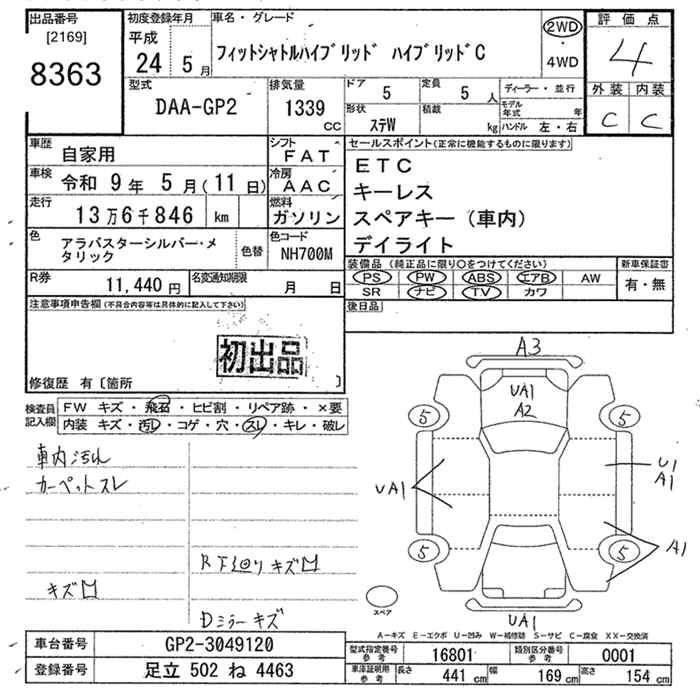 出品番号
[2169]
8363
初度登録年月
平成
24 5 月
車名・グレード
フィットシャトルハイブリッド ハイブリッドC
2WD
・
4WD
評価点
4
外装 内装
C C
型式
DAA-GP2
排気量
1339
CC
ドア
5
定員
5 人
形状
ステW
積載
kg
ディーラー・並行
モデル年式 年
ハンドル 左・右
車歴
自家用
シフト
FAT
車検
令和 9年 5月(11日)
冷房
AAC
走行
13万6千846 km
燃料
ガソリン
色
アラバスターシルバー・メタリック
色替
色コード
NH700M
R券
11,440 円
名変通知期限
月 日
セールスポイント(正常に機能するものに限ります)
ETC
キーレス
スペアキー(車内)
デイライト
装備品(純正品に限り○をつけてください)
PS PW ABS エアB AW
SR ナビ TV カワ
新車保証書
有・無
後日品
注意事項申告欄(不具合内容等は具体的に記入して下さい)
初出品
修復歴 有〔箇所 〕
検査員記入欄
FW キズ・飛石・ヒビ割・リペア跡・×要
内装 キズ・汚レ・コゲ・穴・スレ・キレ・破レ
車内汚れ
カーペットスレ
R下廻りキズ凹
キズ凹
Dミラーキズ
A3
UA1
A2
5
5
UA1
U1
A1
5
5
A1
UA1
スペア
A-キズ E-エクボ U-凹み W-補修跡 S-サビ C-腐食 XX-交換済
車台番号
GP2-3049120
登録番号
足立 502 ね 4463
型式指定番号
参考
16801
類別区分番号
参考
0001
車庫証明用
参考
長さ
441 cm
幅
169 cm
高さ
154 cm